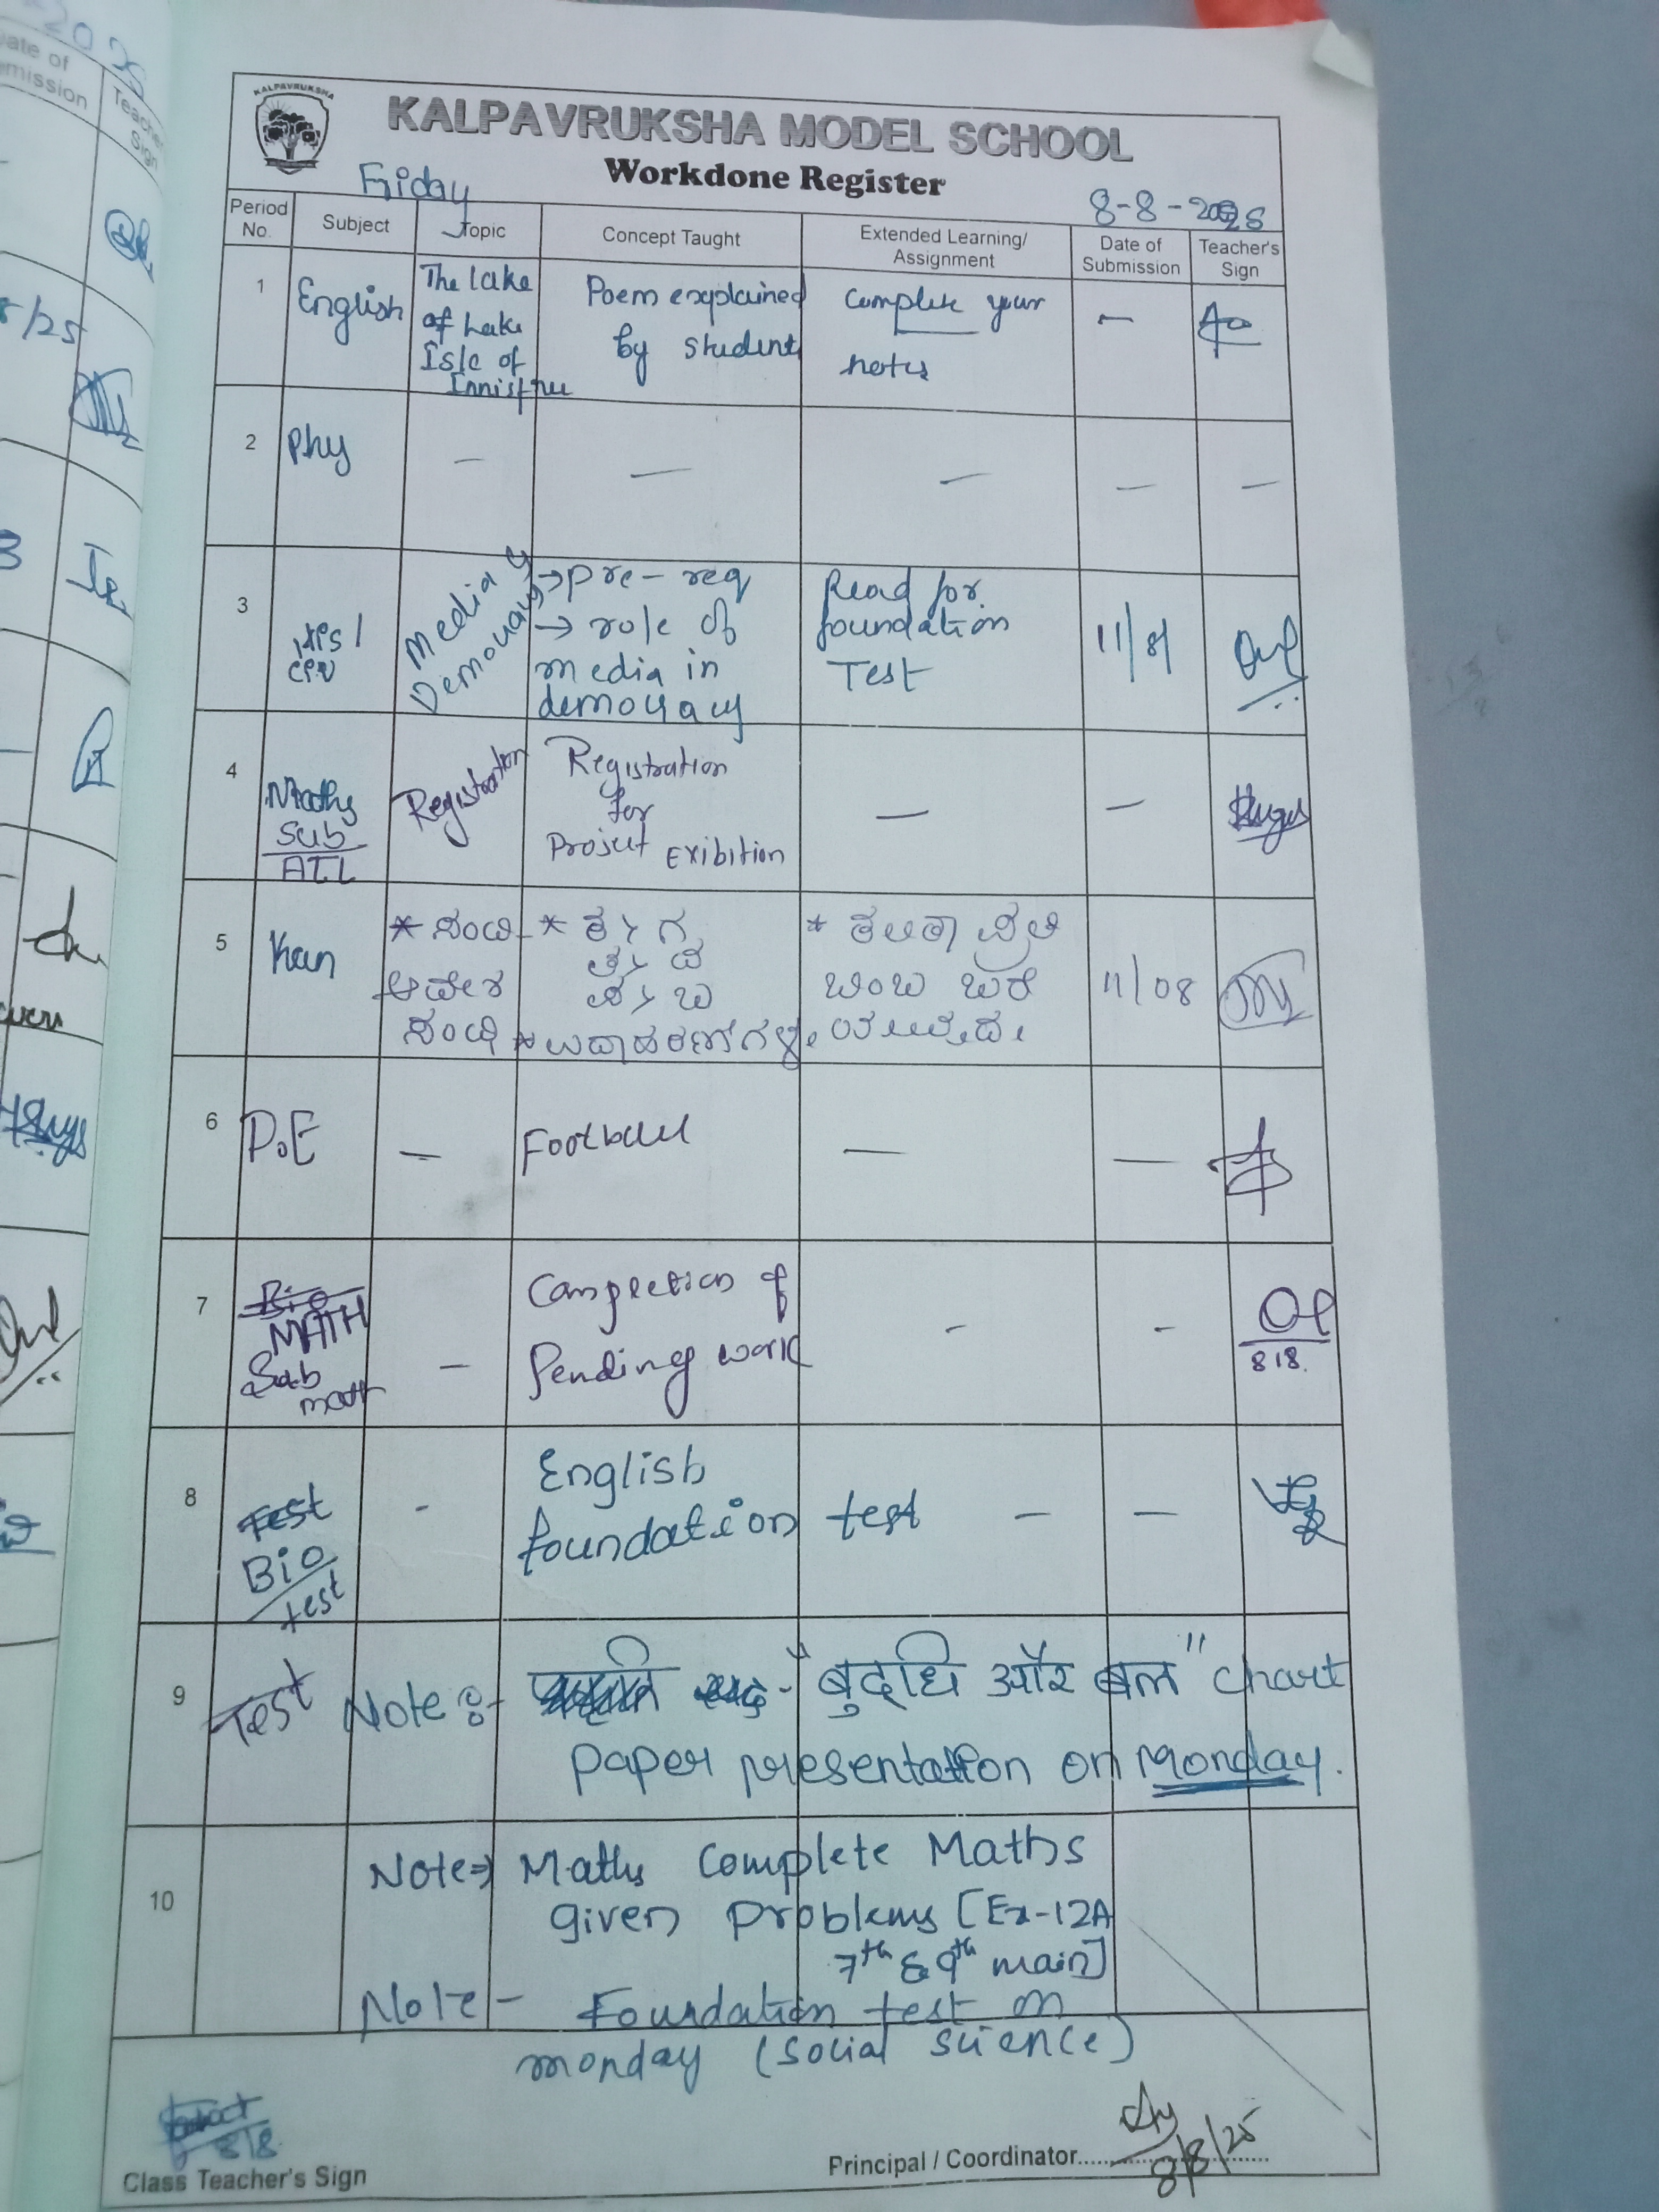 KALPAVRUKSHA
KALPAVRUKSHA MODEL SCHOOL
Workdone Register
Friday
8-8-2025
Period No.
Subject
Topic
Concept Taught
Extended Learning/ Assignment
Date of Submission
Teacher's Sign
1
English
The lake
of Lake
Isle of
Poem explained
by student
Complete your
notes
2
Phy
3
Media &
Democracy
→ pre-req
→ role of
media in
democracy
Read for
foundation
Test
11/8
4
Maths
Sub
ATL
Registration
Registration
for
Project Exibition
5
Kan
* ಸಂಧಿ
ಆದೇಶ
ಸಂಧಿ
* ಕ > ಗ
ತ > ದ
ಪ > ಬ
* ಉದಾಹರಣೆಗಳು
11/08
6
P.E
Football
7
Bio
MATH
Sub
math
Completion of
Pending work
8/8.
8
Test
Bio
test
English
foundation test
9
Test
Note :-
"बुद्धि और बल" chart
paper presentation on Monday.
10
Note⇒ Maths Complete Maths
given problems [Ex-12A
7th & 9th main]
Note - Foundation test on
monday (social science)
8/8
Class Teacher's Sign
Principal / Coordinator
8/8/25
Date of
Submission
Teacher's
Sign